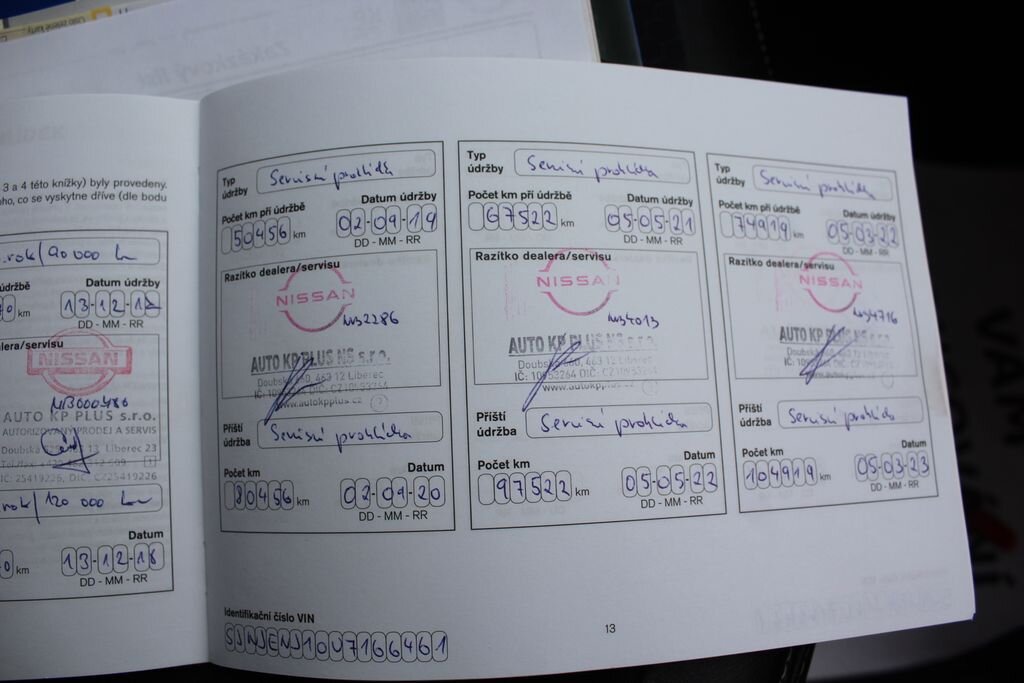 3 a 4 této knížky) byly provedeny.
oho, co se vyskytne dříve (dle bodu
rok/90 000 km
údržbě
Datum údržby
0 km
13-12-1
DD - MM - RR
alera/servisu
NISSAN
AUTO KP PLUS s.r.o.
AUTORIZOVANÝ PRODEJ A SERVIS
Doubská Liberec 23
IČ: 25419226, DIČ: CZ25419226
rok/120 000 km
Datum
0 km
13-12-18
DD - MM - RR
Zakázkový list
Typ údržby
Servisní prohlídka
Počet km při údržbě
50456 km
Datum údržby
02-09-19
DD - MM - RR
Razítko dealera/servisu
NISSAN
AUTO KP PLUS NŠ s.r.o.
Doubská 463 12 Liberec
IČ: 10953264 DIČ: CZ10953264
www.autokpplus.cz
Příští údržba
Servisní prohlídka
Počet km
80456 km
Datum
02-09-20
DD - MM - RR
Typ údržby
Servisní prohlídka
Počet km při údržbě
67522 km
Datum údržby
05-05-21
DD - MM - RR
Razítko dealera/servisu
NISSAN
AUTO KP PLUS NŠ s.r.o.
Doubská 463 12 Liberec
IČ: 10953264 DIČ: CZ10953264
www.autokpplus.cz
Příští údržba
Servisní prohlídka
Počet km
97522 km
Datum
05-05-22
DD - MM - RR
Typ údržby
Servisní prohlídka
Počet km při údržbě
74919 km
Datum údržby
05-03-22
DD - MM - RR
Razítko dealera/servisu
NISSAN
AUTO KP PLUS NŠ s.r.o.
Příští údržba
Servisní prohlídka
Počet km
104919 km
Datum
05-03-23
DD - MM - RR
Identifikační číslo VIN
SJNJENJ10U7166461
13